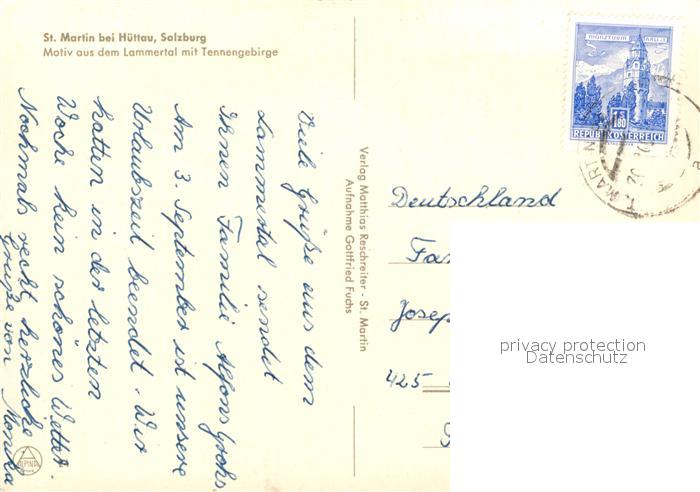 St. Martin bei Hüttau, Salzburg
Motiv aus dem Lammertal mit Tennengebirge
Viele Grüße aus dem
Lammertal sendet
Ihnen Familie Alfons Grohs.
Am 3. September ist unsere
Urlaubszeit beendet. Wir
hatten in der letzten
Woche kein schönes Wetter.
Nochmals recht herzliche
Grüße von Monika
Verlag Matthias Reschreiter - St. Martin
Aufnahme Gottfried Fuchs
MÜNZTURM HALL i.T.
S 1.80
REPUBLIK ÖSTERREICH
T. MARTIN
Deutschland
Fam
Josep
425
privacy protection
Datenschutz
ALPINA